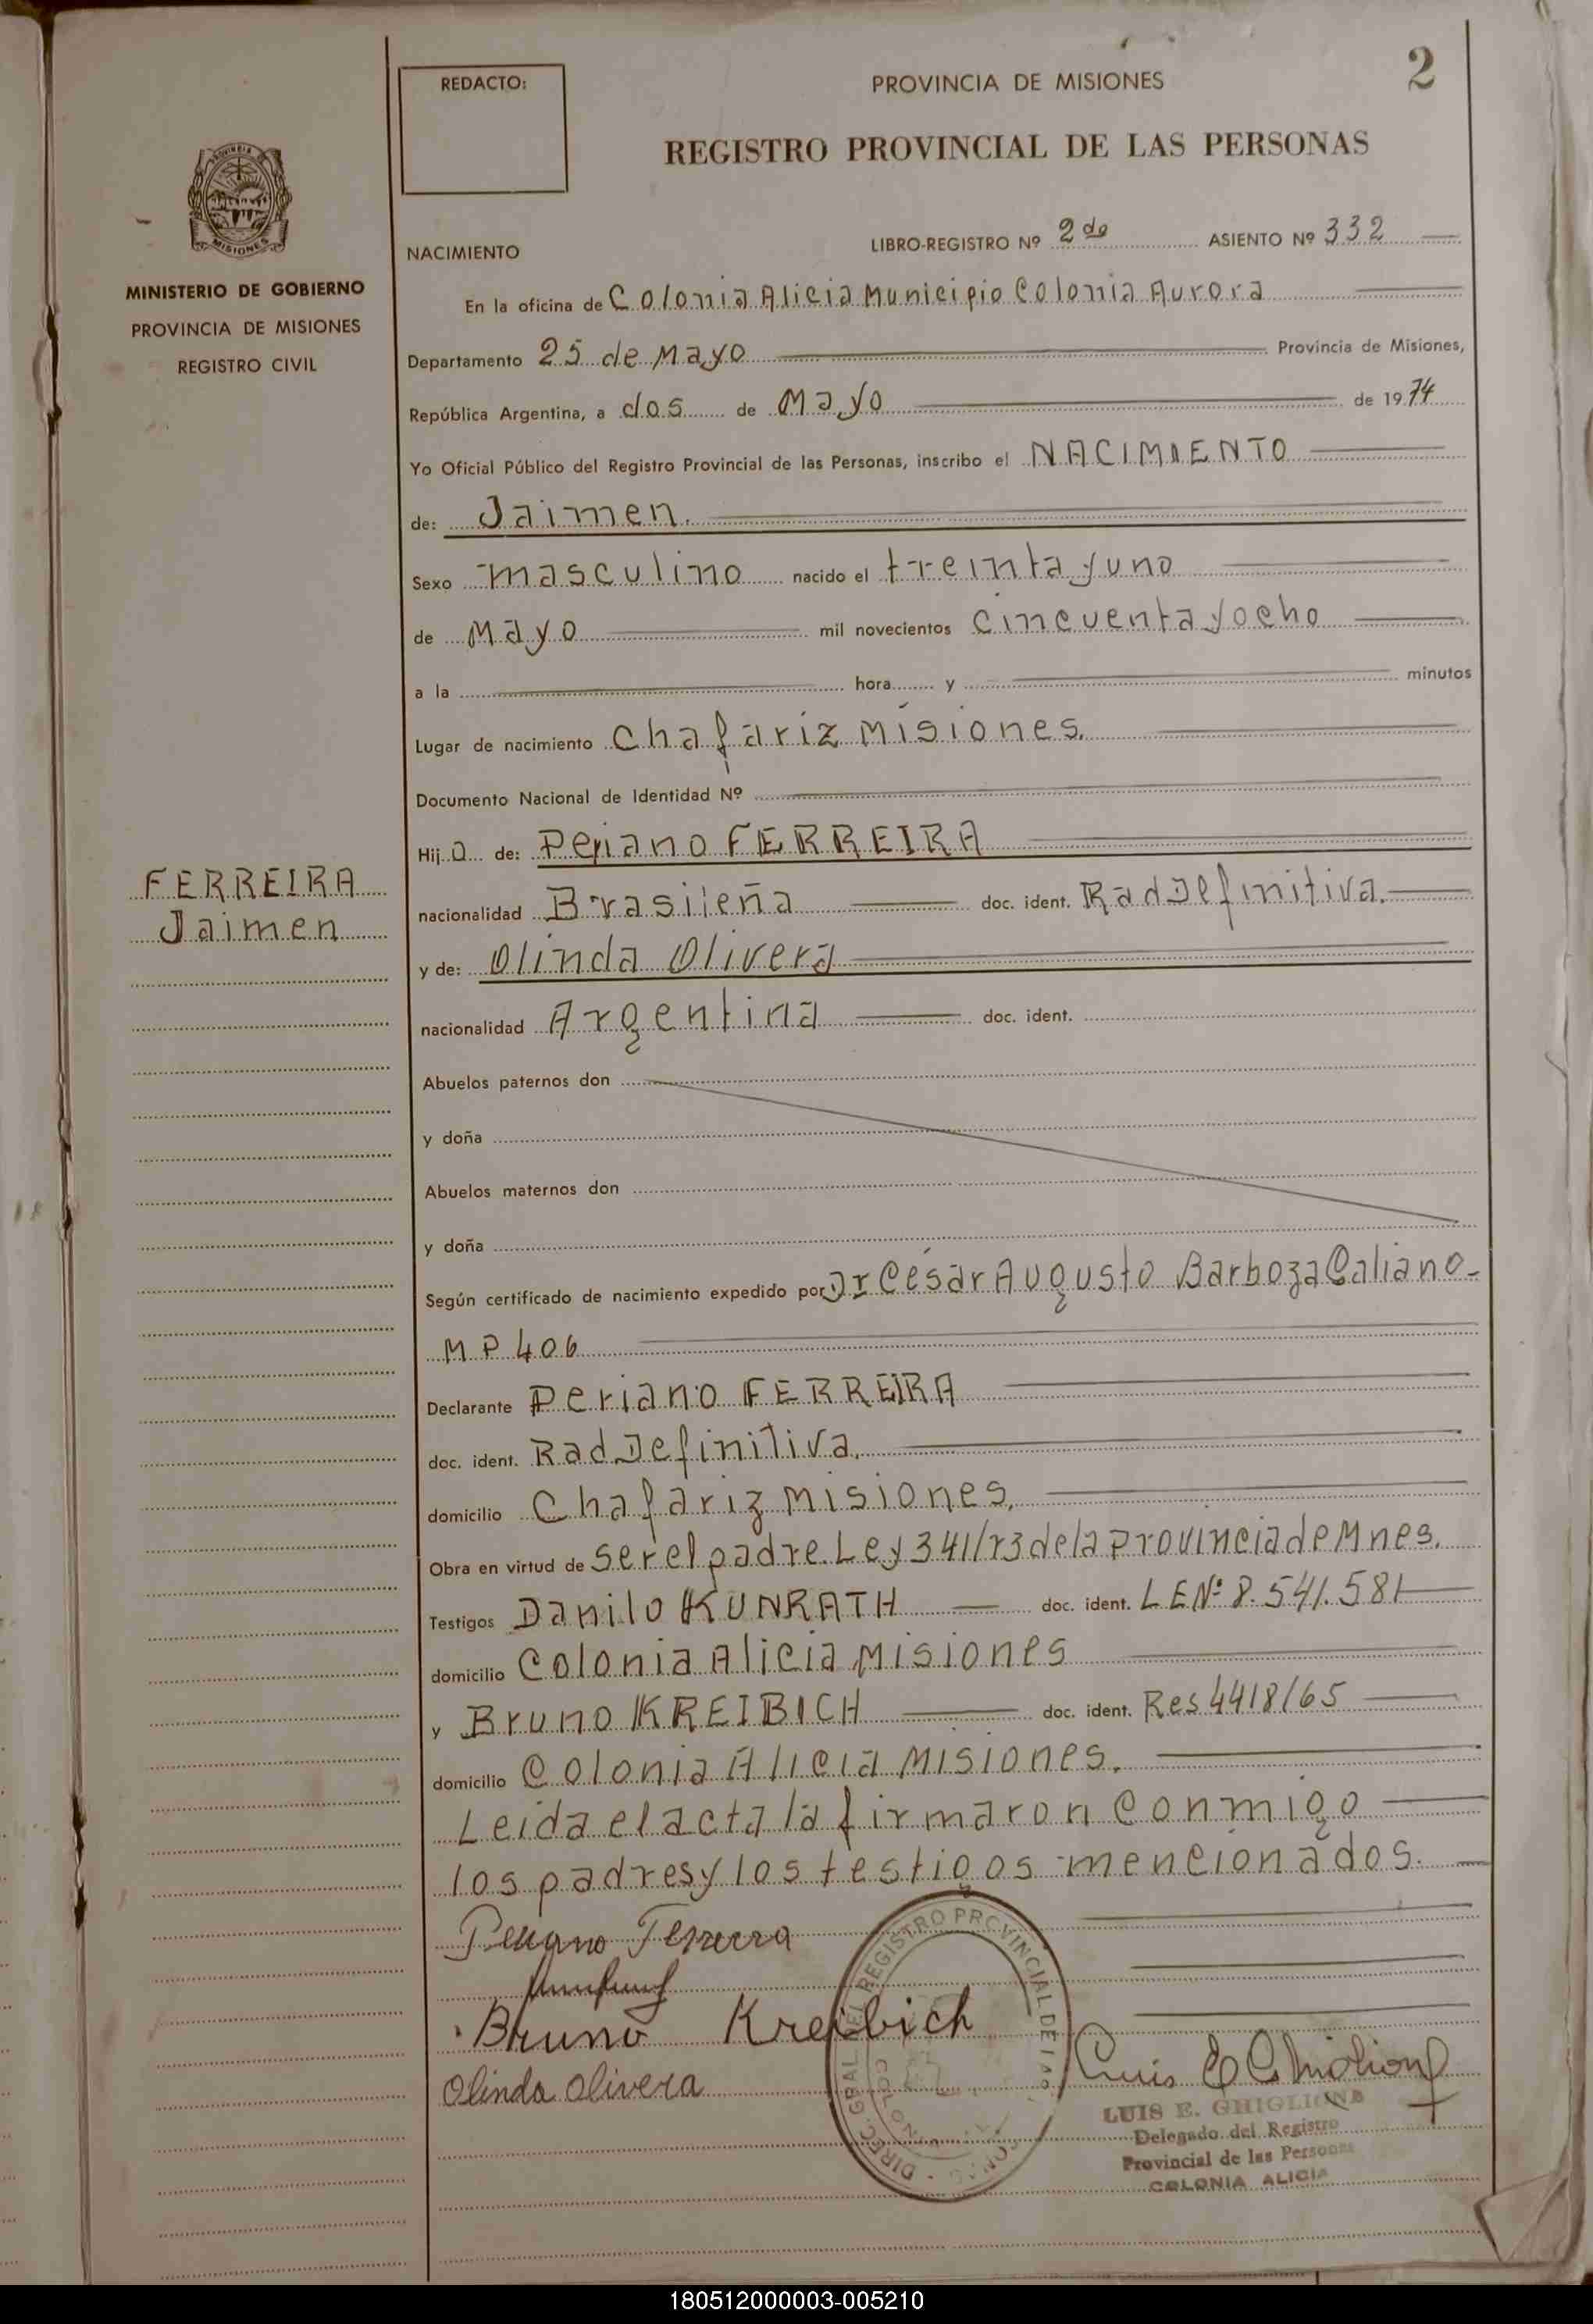 REDACTO:
PROVINCIA DE MISIONES
2
REGISTRO PROVINCIAL DE LAS PERSONAS
MISIONES
MINISTERIO DE GOBIERNO
PROVINCIA DE MISIONES
REGISTRO CIVIL
NACIMIENTO
LIBRO-REGISTRO Nº 2do ASIENTO Nº 332
En la oficina de Colonia Alicia Municipio Colonia Aurora
Departamento 25 de Mayo Provincia de Misiones,
República Argentina, a dos de Mayo de 1974
Yo Oficial Público del Registro Provincial de las Personas, inscribo el NACIMIENTO
de: Jaimen.
Sexo masculino nacido el treinta y uno
de Mayo mil novecientos cincuenta y ocho
a la hora y minutos
Lugar de nacimiento Chafariz Misiones.
Documento Nacional de Identidad Nº
Hijo de: Periano FERREIRA
FERREIRA
Jaimen
nacionalidad Brasileña doc. ident. Rad Definitiva.
y de: Olinda Olivera
nacionalidad Argentina doc. ident.
Abuelos paternos don
y doña
Abuelos maternos don
y doña
Según certificado de nacimiento expedido por Dr César Augusto Barboza Galiano-
MP 406
Declarante Periano FERREIRA
doc. ident. Rad Definitiva.
domicilio Chafariz Misiones.
Obra en virtud de ser el padre. Ley 341/73 de la Provincia de Mnes.
Testigos Danilo KUNRATH doc. ident. LE Nº 8.541.581
domicilio Colonia Alicia Misiones
y Bruno KREIBICH doc. ident. Res 4418/65
domicilio Colonia Alicia Misiones.
Leida el acta la firmaron conmigo
los padres y los testigos mencionados.
Periano Ferreira
Bruno Kreibich
Olinda Olivera
DIREC. GRAL DEL REGISTRO PROVINCIAL DE LAS
Luis E Ghiglione
LUIS E. GHIGLIONE
Delegado del Registro
Provincial de las Personas
COLONIA ALICIA
180512000003-005210